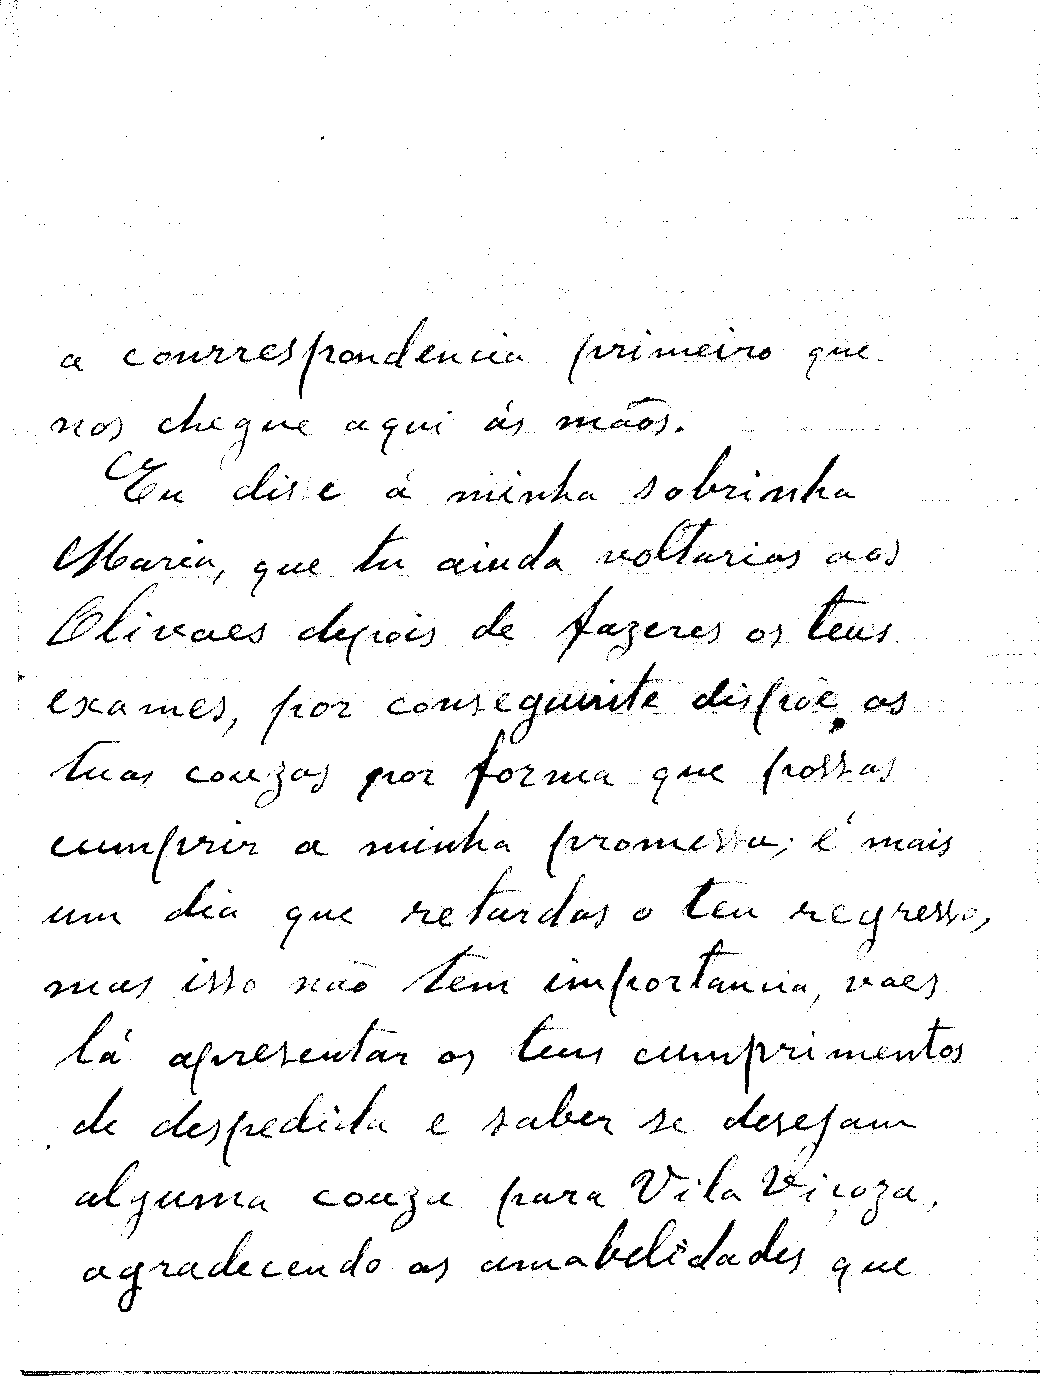 a courrespondencia primeiro que
nos chegue aqui ás mãos.
Eu disse á minha sobrinha
Maria, que tu ainda voltarias aos
Olivaes depois de fazeres os teus
exames, por conseguinte dispõe as
tuas couzas por forma que possas
cumprir a minha promessa; é mais
um dia que retardas o teu regresso,
mas isso não tem importancia, vaes
lá apresentar os teus cumprimentos
de despedida e saber se desejam
alguma couza para Vila Viçoza,
agradecendo as amabelidades que